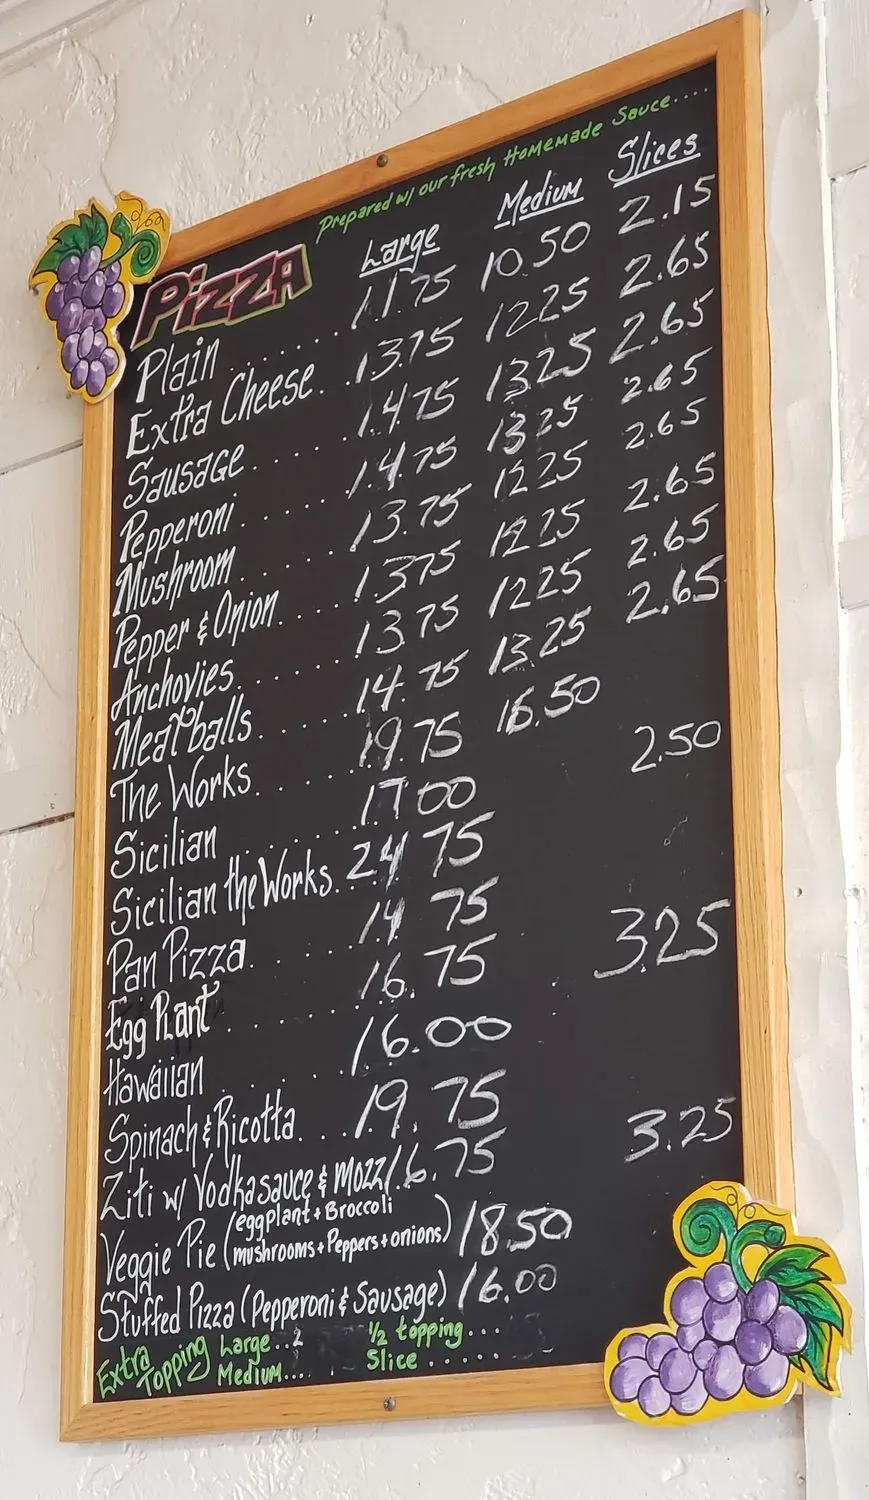 Prepared w/ our fresh Homemade Sauce.....
PIZZA Large Medium Slices
Plain ....... 11.75 10.50 2.15
Extra Cheese.. 13.75 12.25 2.65
Sausage...... 14.75 13.25 2.65
Pepperoni ...... 14.75 13.25 2.65
Mushroom ...... 13.75 12.25 2.65
Pepper & Onion .... 13.75 12.25 2.65
Anchovies...... 13.75 12.25 2.65
Meatballs ...... 14.75 13.25 2.65
The Works...... 19.75 16.50
Sicilian ....... 17.00 2.50
Sicilian the Works... 24.75
Pan Pizza...... 14.75
Egg Plant ....... 16.75 3.25
Hawaiian ....... 16.00
Spinach & Ricotta.... 19.75
Ziti w/ Vodka sauce & Mozz 16.75 3.25
Veggie Pie (eggplant + Broccoli
mushrooms + Peppers + onions) 18.50
Stuffed Pizza (Pepperoni & Sausage) 16.00
Extra Topping Large..2 1/2 topping...
Medium.... Slice .....